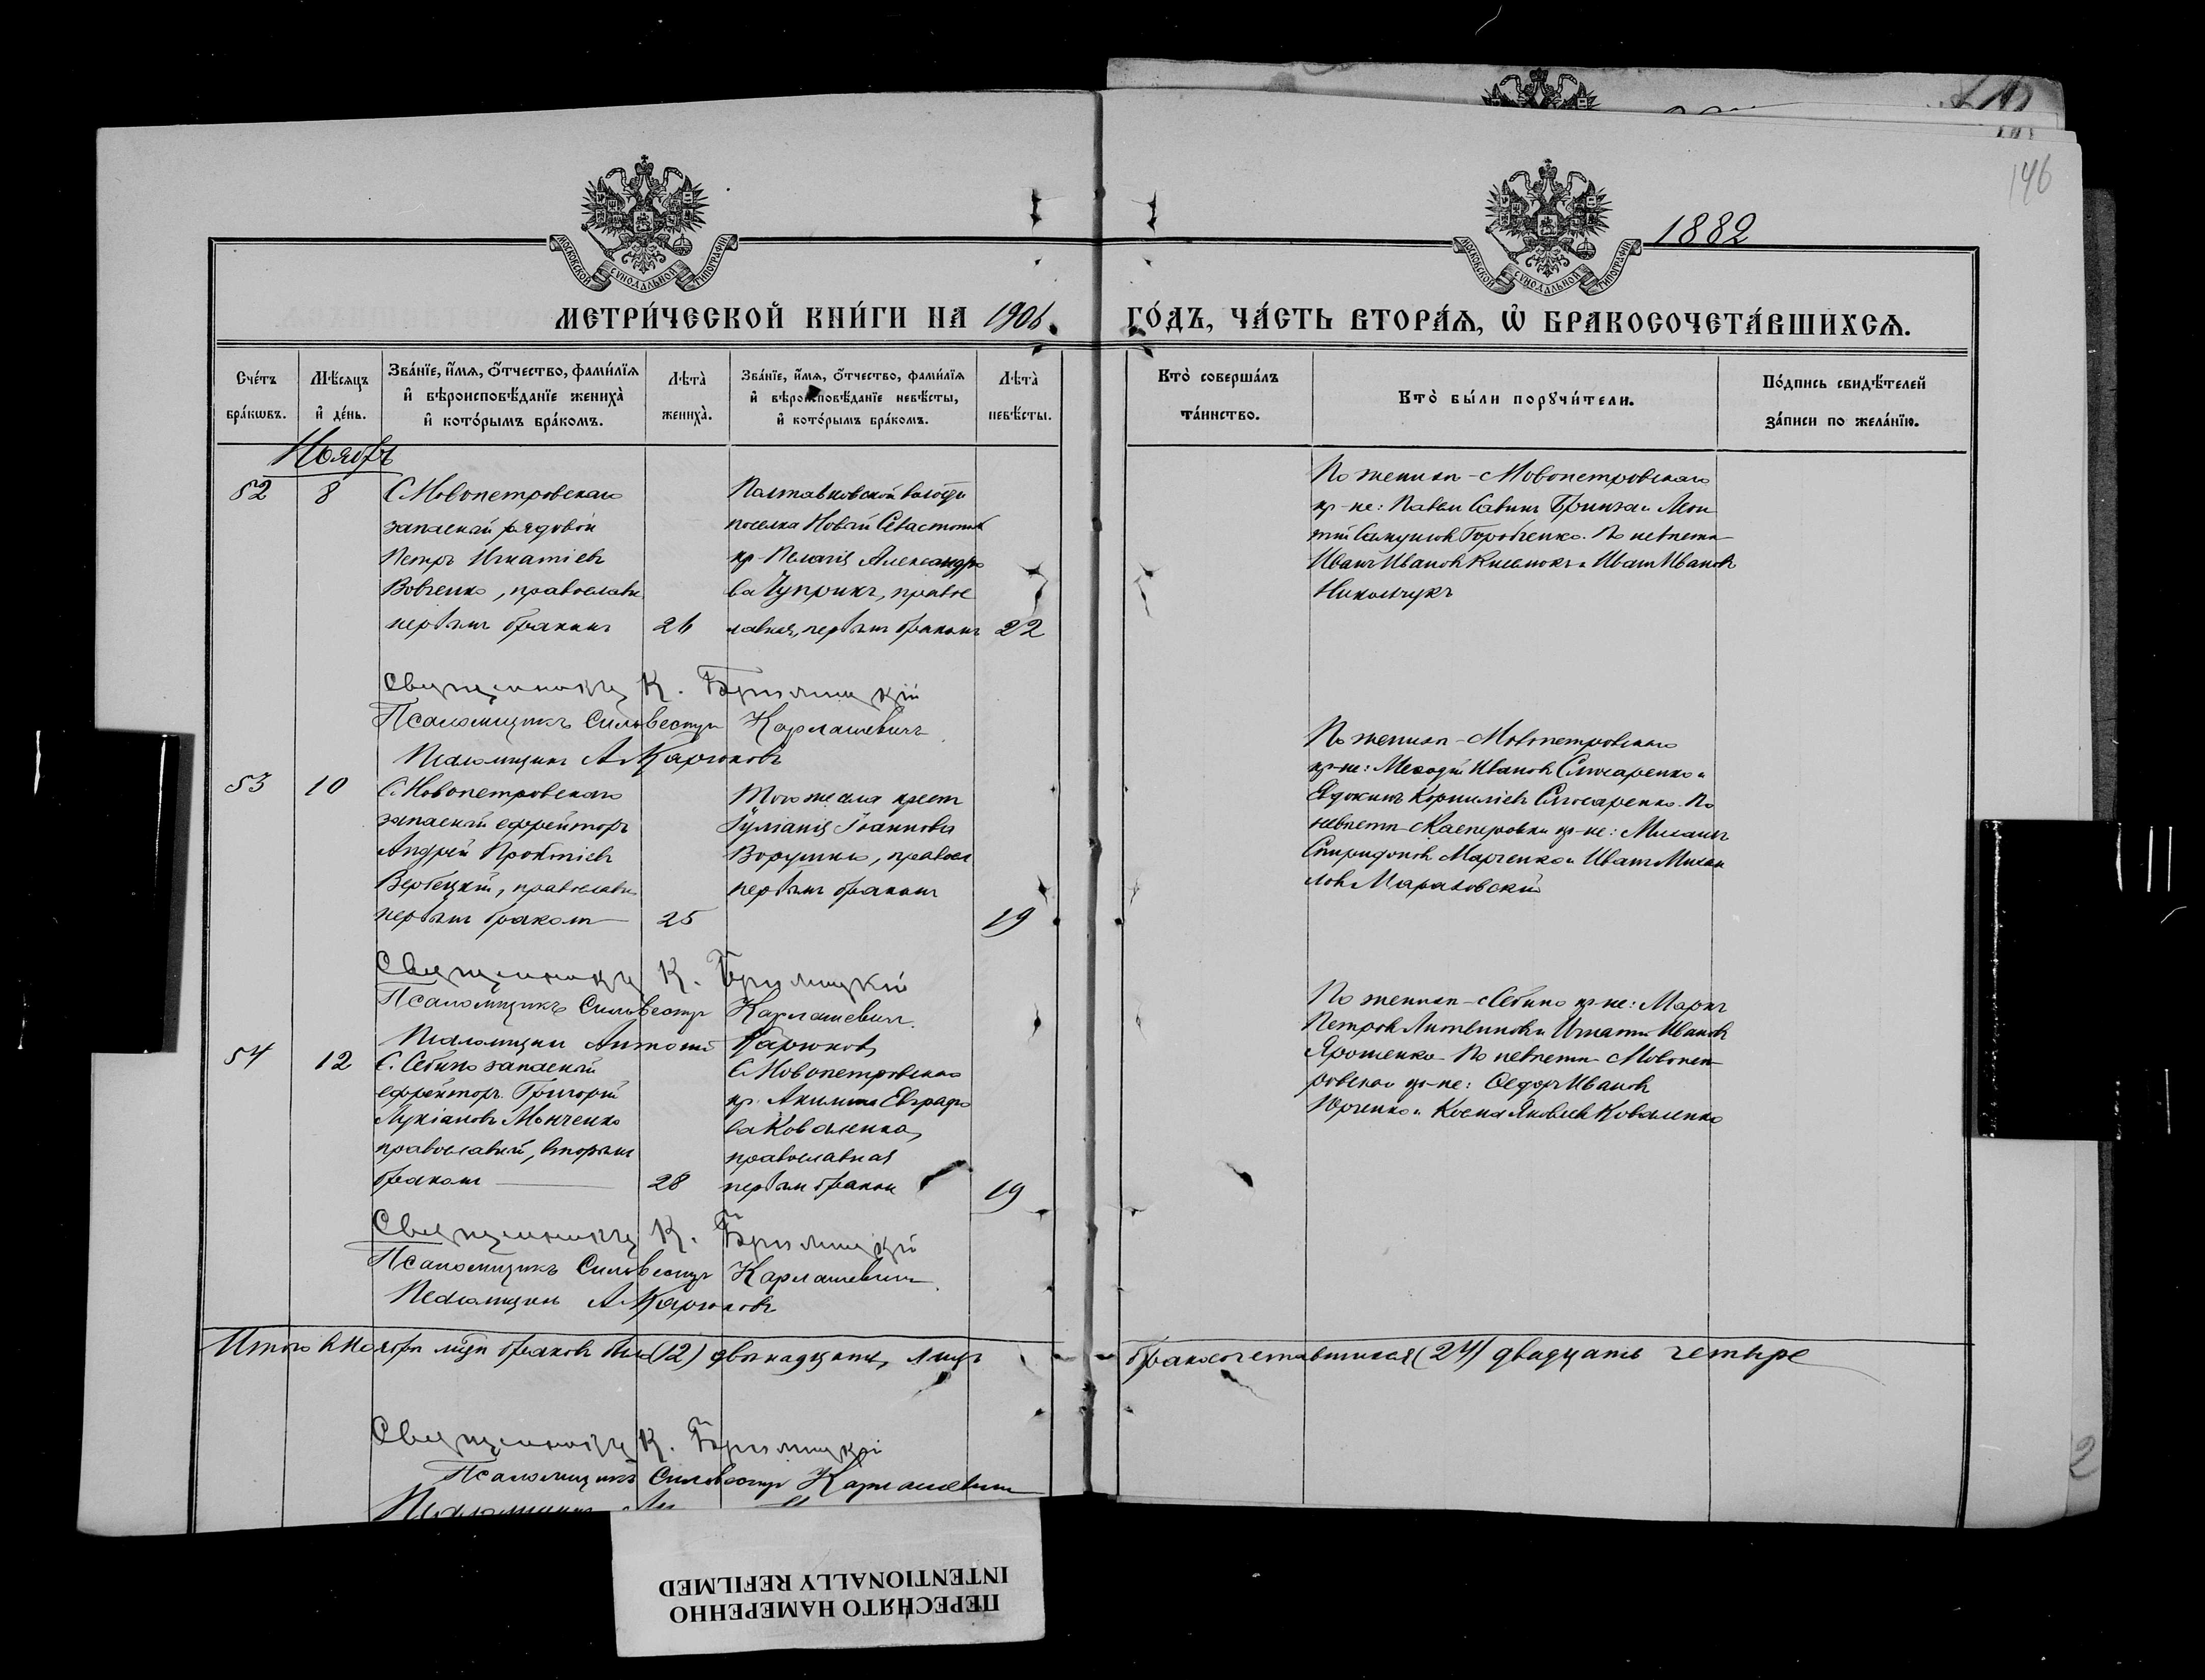 146
1882
МОСКОВСКОЙ СУНОДАЛЬНОЙ ТИПОГРАФІИ
МОСКОВСКОЙ СУНОДАЛЬНОЙ ТИПОГРАФІИ
МЕТРИ́ЧЕСКОЙ КНИ́ГИ НА 1906 ГО́ДЪ, ЧА́СТЬ ВТОРА́Я, Ѽ БРАКОСОЧЕТА́ВШИХСЯ.
Сче́тъ бра́кωвъ.
Мѣ́сяцъ и҆ де́нь.
Зва́нїе, и҆́мя, ѻ҆́тчество, фами́лїя и҆ вѣроисповѣ́данїе жениха̀ и҆ кото́рымъ бра́комъ.
Лѣта̀ жениха̀.
Зва́нїе, и҆́мя, ѻ҆́тчество, фами́лїя и҆ вѣроисповѣ́данїе невѣ́сты, и҆ кото́рымъ бра́комъ.
Лѣта̀ невѣ́сты.
Кто̀ соверша́лъ та́инство.
Кто̀ бы́ли порꙋчи́тели.
По́дпись свидѣ́телей за́писи по жела́нїю.
Ноябрь
52
8
С. Новопетровскаго
запасный рядовой
Петръ Игнатіевъ
Вовченко, православн
первымъ бракомъ
26
Полтавковской волости
поселка Новый Севастополь
кр. Пелагія Александро
ва Чуприкъ, правос
лавная, первымъ бракомъ
22
По женихѣ – Новопетровскаго
кр-не: Павелъ Савинъ Гринза и Леон
тій Самуиловъ Горобченко. По невѣстѣ
Иванъ Ивановъ Киселюкъ и Иванъ Ивановъ
Никольчукъ
Священникъ К. Брилицкій
Псаломщикъ Сильвестръ Карлашевичъ
Псаломщикъ А. Карюковъ
53
10
С. Новопетровскаго
запасный ефрейторъ
Андрей Прокопіевъ
Вербецкій, православн
первымъ бракомъ
25
Того же села крест
Іуліанія Іоаннова
Ворушко, правосл
первымъ бракомъ
19
По женихѣ – Новопетровскаго
кр-не: Меѳодій Ивановъ Слюсаренко и
Евдокимъ Корниліевъ Слюсаренко. По
невѣстѣ – Касперовки кр-не: Михаилъ
Спиридоновъ Марченко и Иванъ Михаи
ловъ Мараховскій
Священникъ К. Брилицкій
Псаломщикъ Сильвестръ Карлашевичъ
Псаломщикъ Антоній Карюковъ
54
12
С. Себино запасный
ефрейторъ Григорій
Лукіановъ Манченко
православный, вторымъ
бракомъ
28
С. Новопетровскаго
кр. Акилина Евграфо
ва Коваленко,
православная
первымъ бракомъ
19
По женихѣ – с Себино кр-не: Маркъ
Петровъ Литвиновъ и Игнатій Ивановъ
Ярошенко – По невѣстѣ – Новопет
ровскаго кр-не: Ѳедоръ Ивановъ
Юрченко и Косма Яковлевъ Коваленко
Священникъ К. Брилицкій
Псаломщикъ Сильвестръ Карлашевичъ
Псаломщикъ А. Карюковъ
Итого въ ноябрѣ м-цѣ браковъ было (12) двѣнадцать, лицъ бракосочетавшихся (24) двадцать четыре
Священникъ К. Брилицкій
Псаломщикъ Сильвестръ Карлашевичъ
Псаломщикъ
2
ПЕРЕСНЯТО НАМЕРЕННО
INTENTIONALLY REFILMED